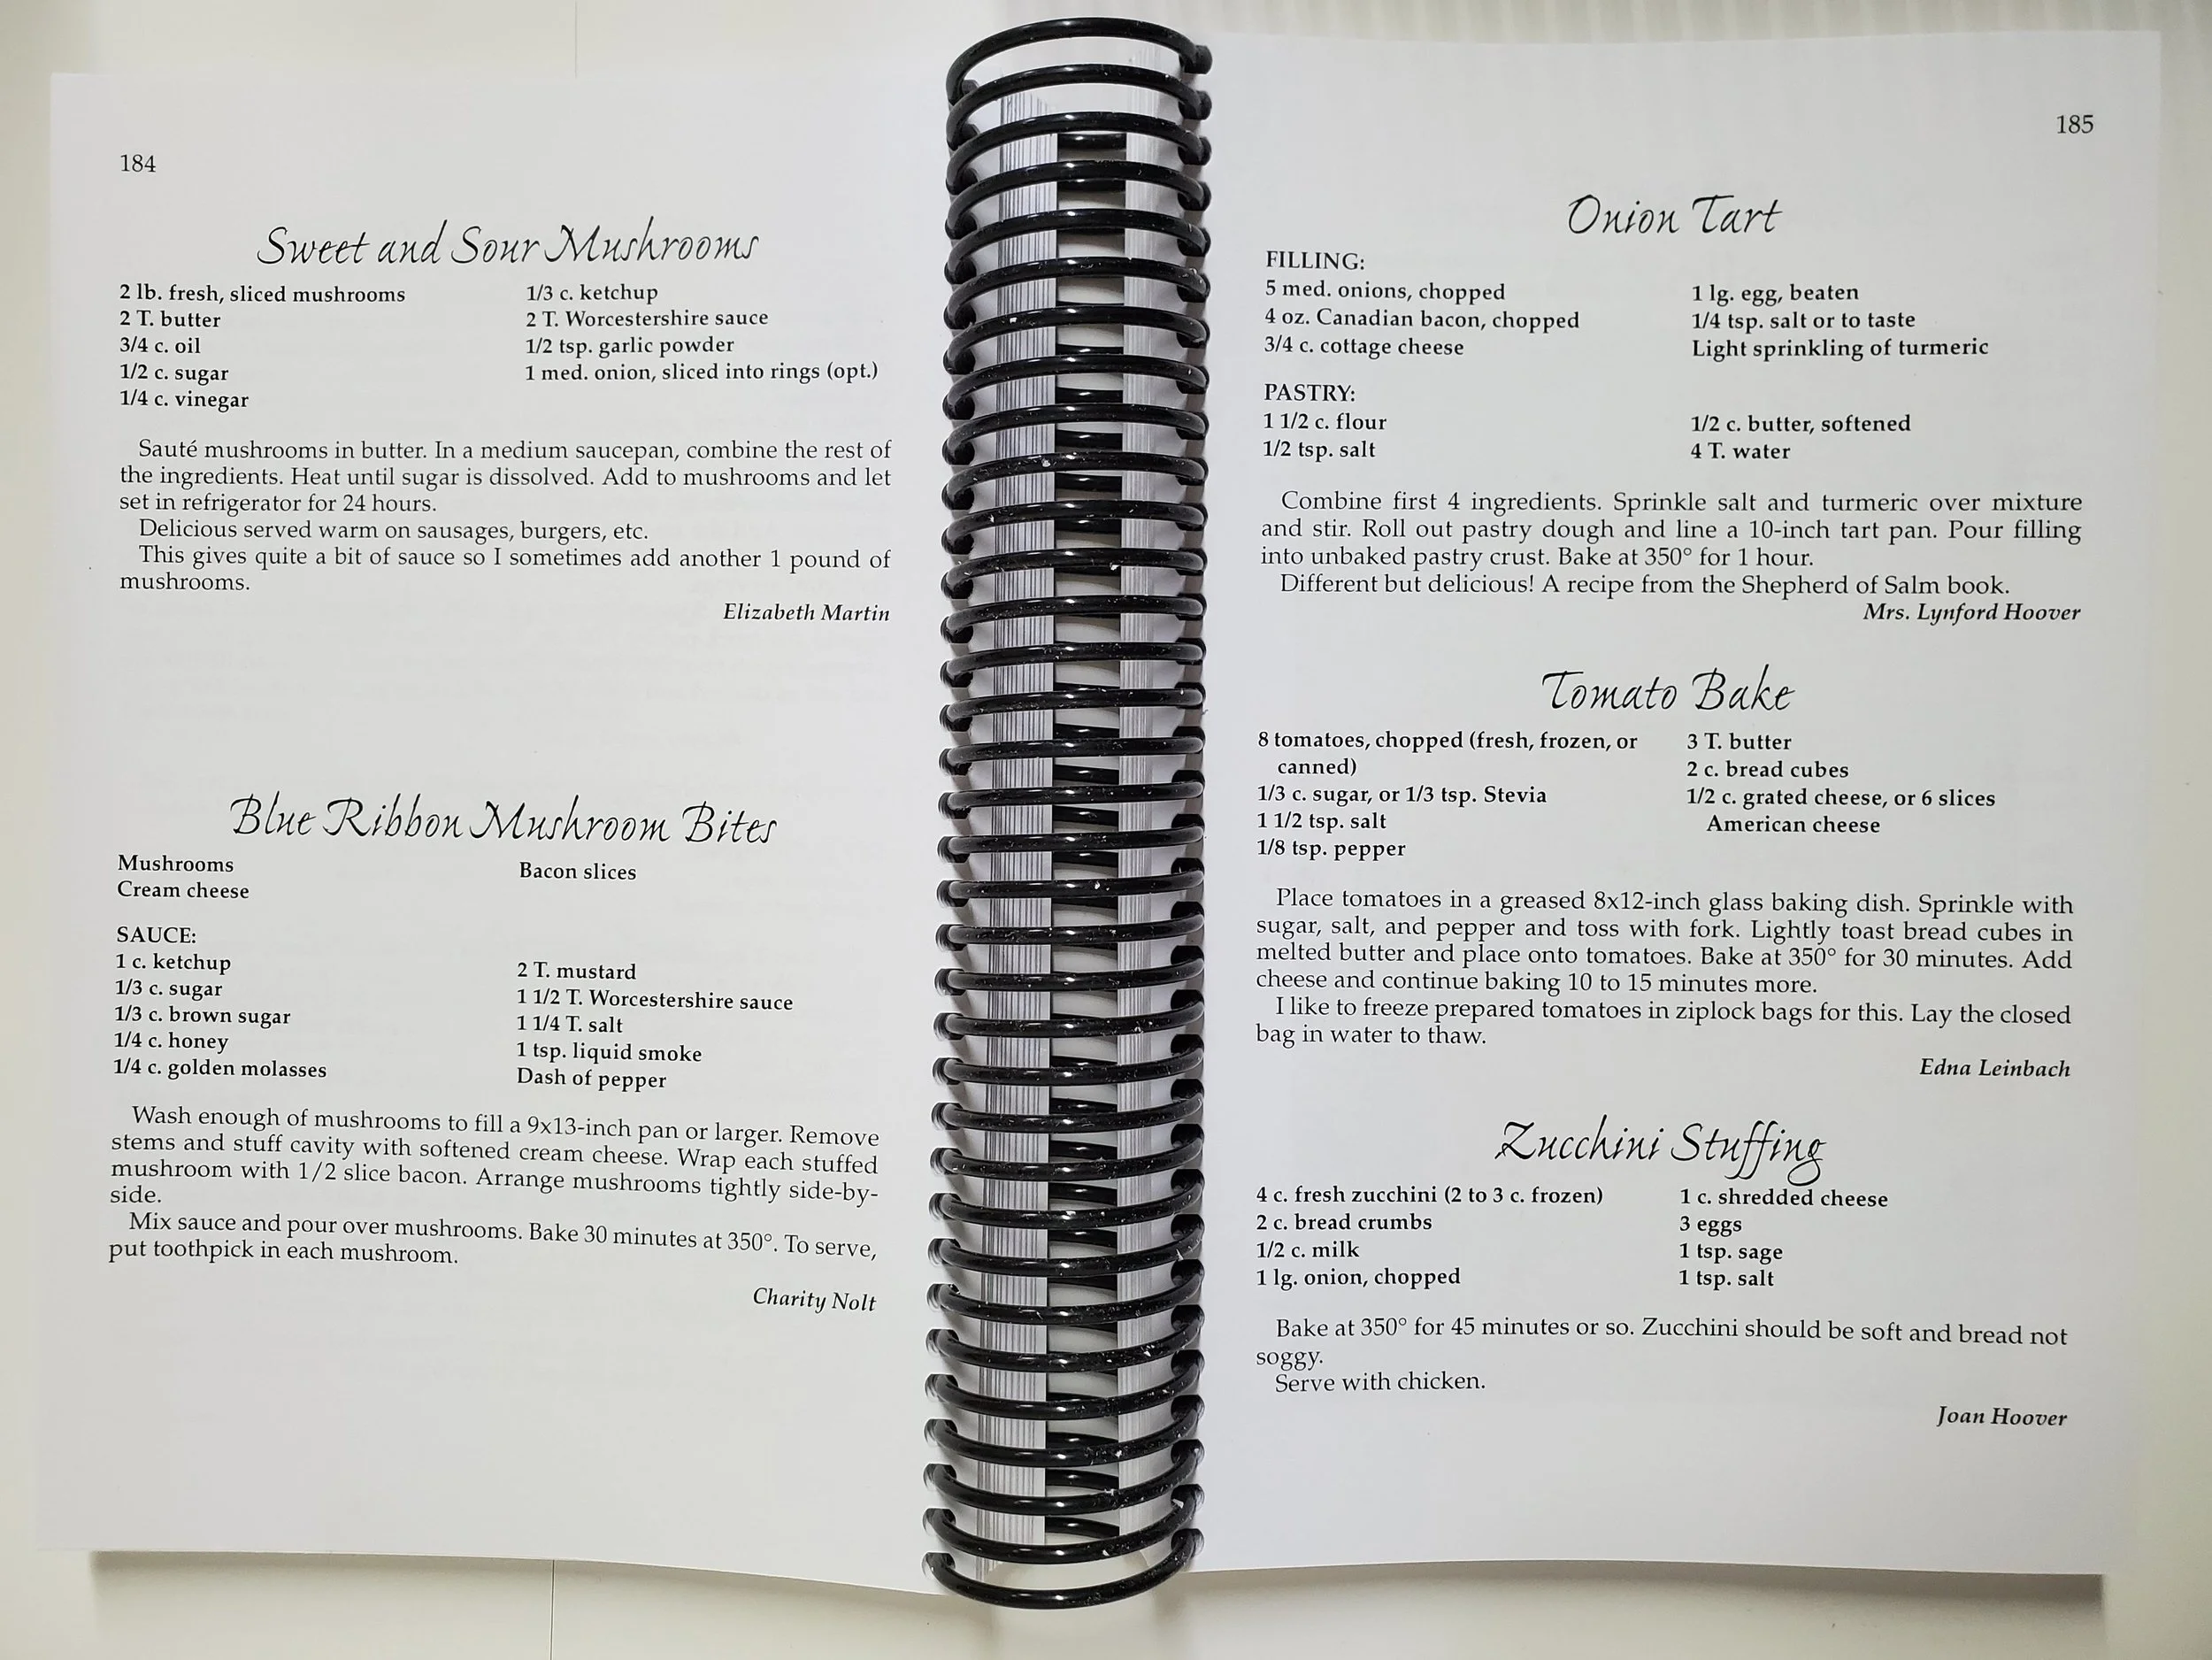 184
Sweet and Sour Mushrooms
2 lb. fresh, sliced mushrooms
2 T. butter
3/4 c. oil
1/2 c. sugar
1/4 c. vinegar
1/3 c. ketchup
2 T. Worcestershire sauce
1/2 tsp. garlic powder
1 med. onion, sliced into rings (opt.)
Sauté mushrooms in butter. In a medium saucepan, combine the rest of
the ingredients. Heat until sugar is dissolved. Add to mushrooms and let
set in refrigerator for 24 hours.
Delicious served warm on sausages, burgers, etc.
This gives quite a bit of sauce so I sometimes add another 1 pound of
mushrooms.
Elizabeth Martin
Blue Ribbon Mushroom Bites
Mushrooms
Cream cheese
Bacon slices
SAUCE:
1 c. ketchup
1/3 c. sugar
1/3 c. brown sugar
1/4 c. honey
1/4 c. golden molasses
2 T. mustard
1 1/2 T. Worcestershire sauce
1 1/4 T. salt
1 tsp. liquid smoke
Dash of pepper
Wash enough of mushrooms to fill a 9x13-inch pan or larger. Remove
stems and stuff cavity with softened cream cheese. Wrap each stuffed
mushroom with 1/2 slice bacon. Arrange mushrooms tightly side-by-
side.
Mix sauce and pour over mushrooms. Bake 30 minutes at 350°. To serve,
put toothpick in each mushroom.
Charity Nolt
185
Onion Tart
FILLING:
5 med. onions, chopped
4 oz. Canadian bacon, chopped
3/4 c. cottage cheese
1 lg. egg, beaten
1/4 tsp. salt or to taste
Light sprinkling of turmeric
PASTRY:
1 1/2 c. flour
1/2 tsp. salt
1/2 c. butter, softened
4 T. water
Combine first 4 ingredients. Sprinkle salt and turmeric over mixture
and stir. Roll out pastry dough and line a 10-inch tart pan. Pour filling
into unbaked pastry crust. Bake at 350° for 1 hour.
Different but delicious! A recipe from the Shepherd of Salm book.
Mrs. Lynford Hoover
Tomato Bake
8 tomatoes, chopped (fresh, frozen, or
canned)
1/3 c. sugar, or 1/3 tsp. Stevia
1 1/2 tsp. salt
1/8 tsp. pepper
3 T. butter
2 c. bread cubes
1/2 c. grated cheese, or 6 slices
American cheese
Place tomatoes in a greased 8x12-inch glass baking dish. Sprinkle with
sugar, salt, and pepper and toss with fork. Lightly toast bread cubes in
melted butter and place onto tomatoes. Bake at 350° for 30 minutes. Add
cheese and continue baking 10 to 15 minutes more.
I like to freeze prepared tomatoes in ziplock bags for this. Lay the closed
bag in water to thaw.
Edna Leinbach
Zucchini Stuffing
4 c. fresh zucchini (2 to 3 c. frozen)
2 c. bread crumbs
1/2 c. milk
1 lg. onion, chopped
1 c. shredded cheese
3 eggs
1 tsp. sage
1 tsp. salt
Bake at 350° for 45 minutes or so. Zucchini should be soft and bread not
soggy.
Serve with chicken.
Joan Hoover